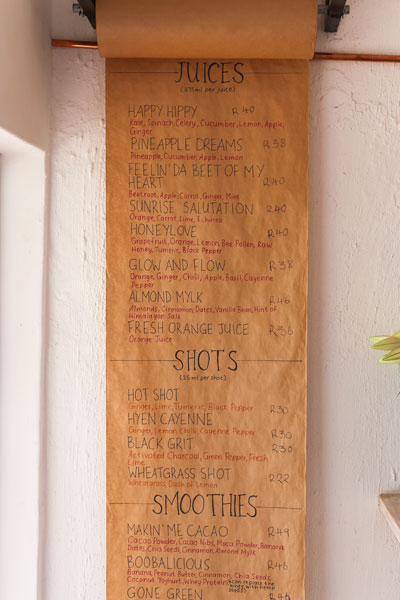 JUICES
(375ml per juice)
HAPPY HIPPY R40
Kale, Spinach, Celery, Cucumber, Lemon, Apple,
Ginger
PINEAPPLE DREAMS R38
Pineapple, Cucumber, Apple, Lemon
FEELIN' DA BEET OF MY
HEART R40
Beetroot, Apple, Carrot, Ginger, Mint
SUNRISE SALUTATION R40
Orange, Carrot, Lime, Echinacea
HONEYLOVE R40
Grapefruit, Orange, Lemon, Bee Pollen, Raw
Honey, Tumeric, Black Pepper
GLOW AND FLOW R38
Orange, Ginger, Chilli, Apple, Basil, Cayenne
Pepper
ALMOND MYLK R46
Almonds, Cinnamon, Dates, Vanilla Bean, Hint of
Himalayan Salt
FRESH ORANGE JUICE R36
Orange Juice
SHOTS
(35ml per shot)
HOT SHOT
Ginger, Lime, Tumeric, Black Pepper R30
HYEN CAYENNE
Ginger, Lemon, Chilli, Cayenne Pepper R30
BLACK GRIT R30
Activated Charcoal, Green Pepper, Fresh
Lime
WHEATGRASS SHOT R22
Wheatgrass, Dash of Lemon
SMOOTHIES
MAKIN' ME CACAO R49
Cacao Powder, Cacao Nibs, Maca Powder, Banana
Dates, Chia Seeds, Cinnamon, Almond Mylk
BOOBALICIOUS R46
Banana, Peanut Butter, Cinnamon, Chia Seeds,
Coconut Yoghurt, Whey Protein
GONE GREEN